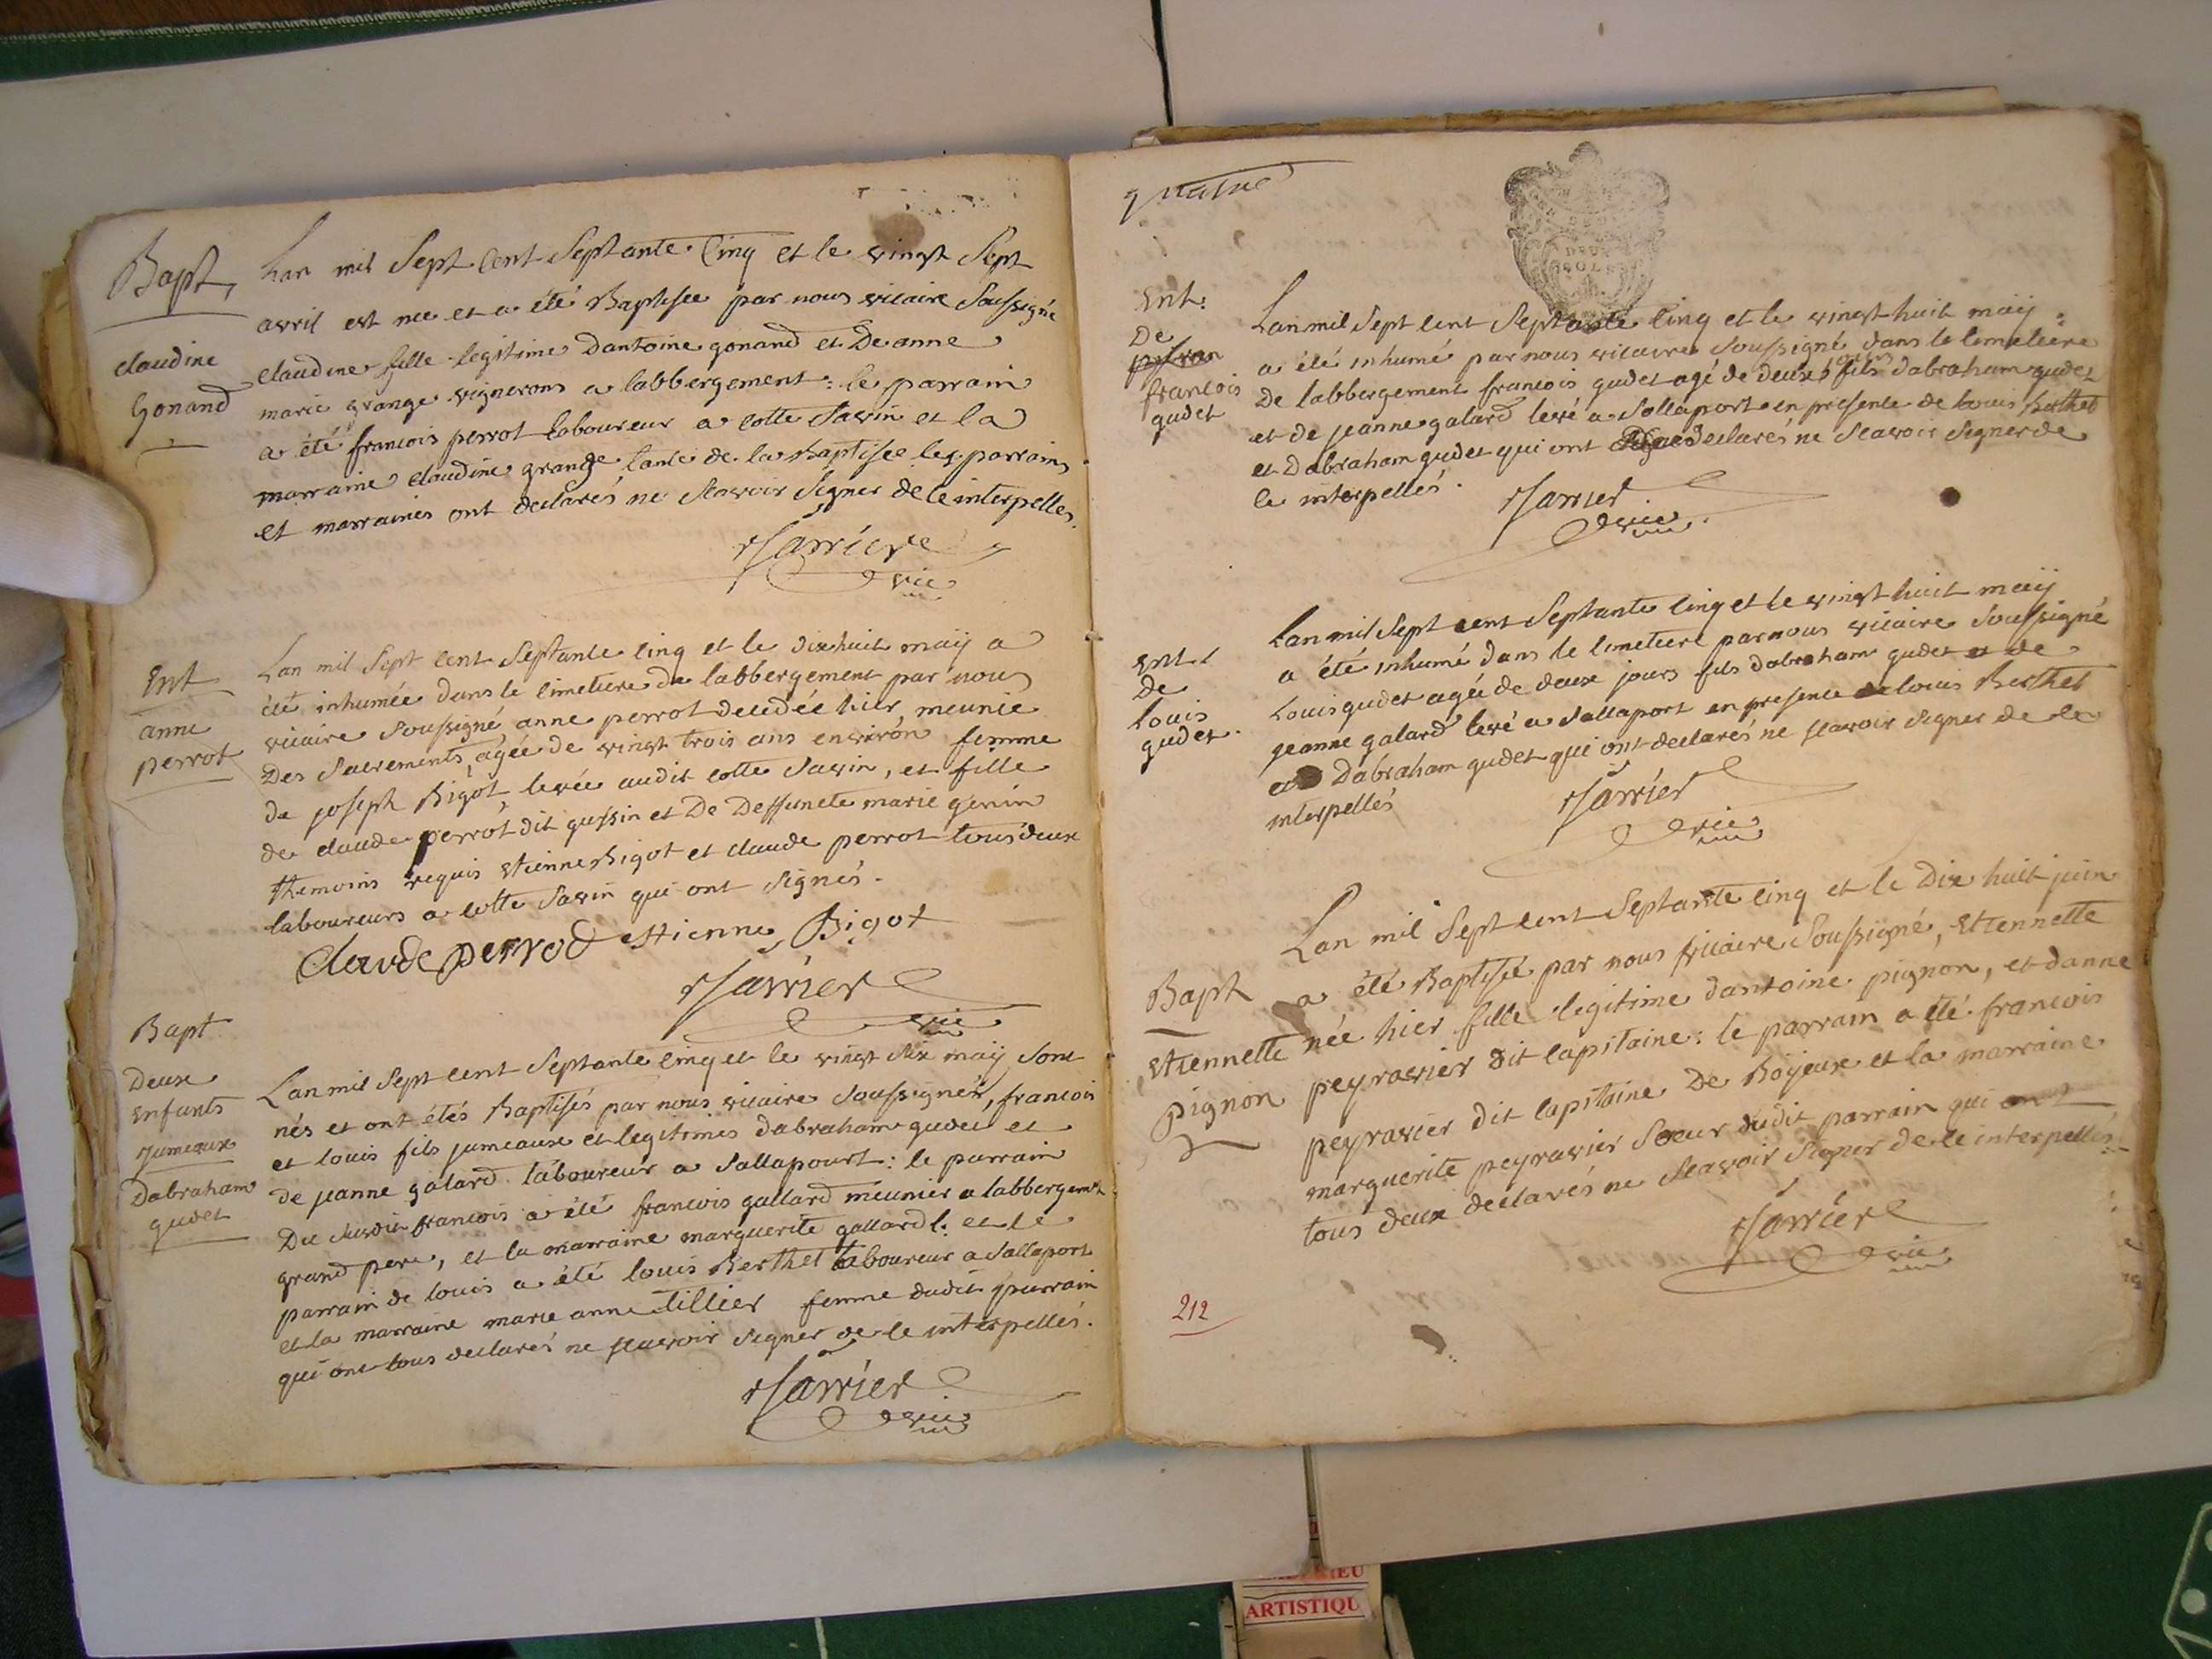 Bapt,
claudine
Gonand
Lan mil Sept Cent Septante Cinq et le vingt Sept
avril est nee et a été Baptisee par nous vicaire Soussigné
claudine fille legitime dantoine gonand et De anne
marie grange vignerons a labbergement : le parrain
a été francois perrot laboureur a cotte Savin et la
marraine claudine grange tante de la Baptisée les parrains
et marraines ont declarés ne Scavoir Signer de ce interpellés.
vic
Ent
anne
perrot
Lan mil Sept cent Septante cinq et le dixhuit maÿ a
été inhumée dans le cimetiere de labbergement par nous
vicaire Soussigné anne perrot decedée hier, meunie
Des Sacrements, agée de vingt trois ans environ femme
de joseph Bigot, levée audit cotte Savin, et fille
de claude perrot dit gussin et De Deffuncte marie genin
themoins requis etienne Bigot et claude perrot tous deux
laboureurs a cotte Savin qui ont Signés.
Claude perrod estienne Bigot
Jarrier
vic
Bapt
Deux
enfants
jumeaux
Dabraham
gudet
Lan mil Sept cent Septante cinq et le vingt Six maÿ Sont
nés et ont étés Baptisés par nous vicaire Soussignér, francois
et louis fils jumeaux et legitimes dabraham gudet et
de jeanne galard laboureur a Sallapourt : le parrain
Du Susdit francois a été francois gallard meunier a labbergemt
grand pere, et la marraine marguerite gallard : et le
parrain de louis a été louis Berthet laboureur a Sallaport
et la marraine marie anne tillier femme dudit parrain
qui ont tous declarés ne scavoir Signer de ce interpellés.
Jarrier
vic
quatre
DEUX
SOLS
Ent:
De
francois
gudet
Lan mil Sept cent Septante cinq et le vingt huit maÿ
a été inhumé par nous vicaire Soussigné dans le cimetiere
De labbergement francois gudet agé de deux jours fils dabraham gudet
et de jeanne galard levé a Sallaport en presence de louis Berthet
et Dabraham gudet qui ont declarés ne Scavoir Signer de
ce interpellés.
Jarrier
vic
Ent.
De
louis
gudet.
Lan mil Sept cent Septante cinq et le vingt huit maÿ
a été inhumé dans le cimetiere par nous vicaire Soussigné
Louis gudet agée de deux jours fils dabraham gudet et de
jeanne galard levé a Sallaport en presence de louis Berthet
et Dabraham gudet qui ont declarés ne scavoir Signer de ce
interpellés
Jarrier
vic
Bapt
Etiennette
pignon
Lan mil Sept cent Septante cinq et le Dix huit juin
a été Baptisée par nous vicaire Soussigné, Etiennette
née hier fille legitime dantoine pignon, et danne
peyravier dit capitaine : le parrain a été francois
peyravier dit capitaine De Boyeux et la marraine
marguerite peyravier Soeur dudit parrain qui ont
tous deux declarés ne Scavoir Signer de ce interpellés.
Jarrier
vic
212
ARTISTIQU